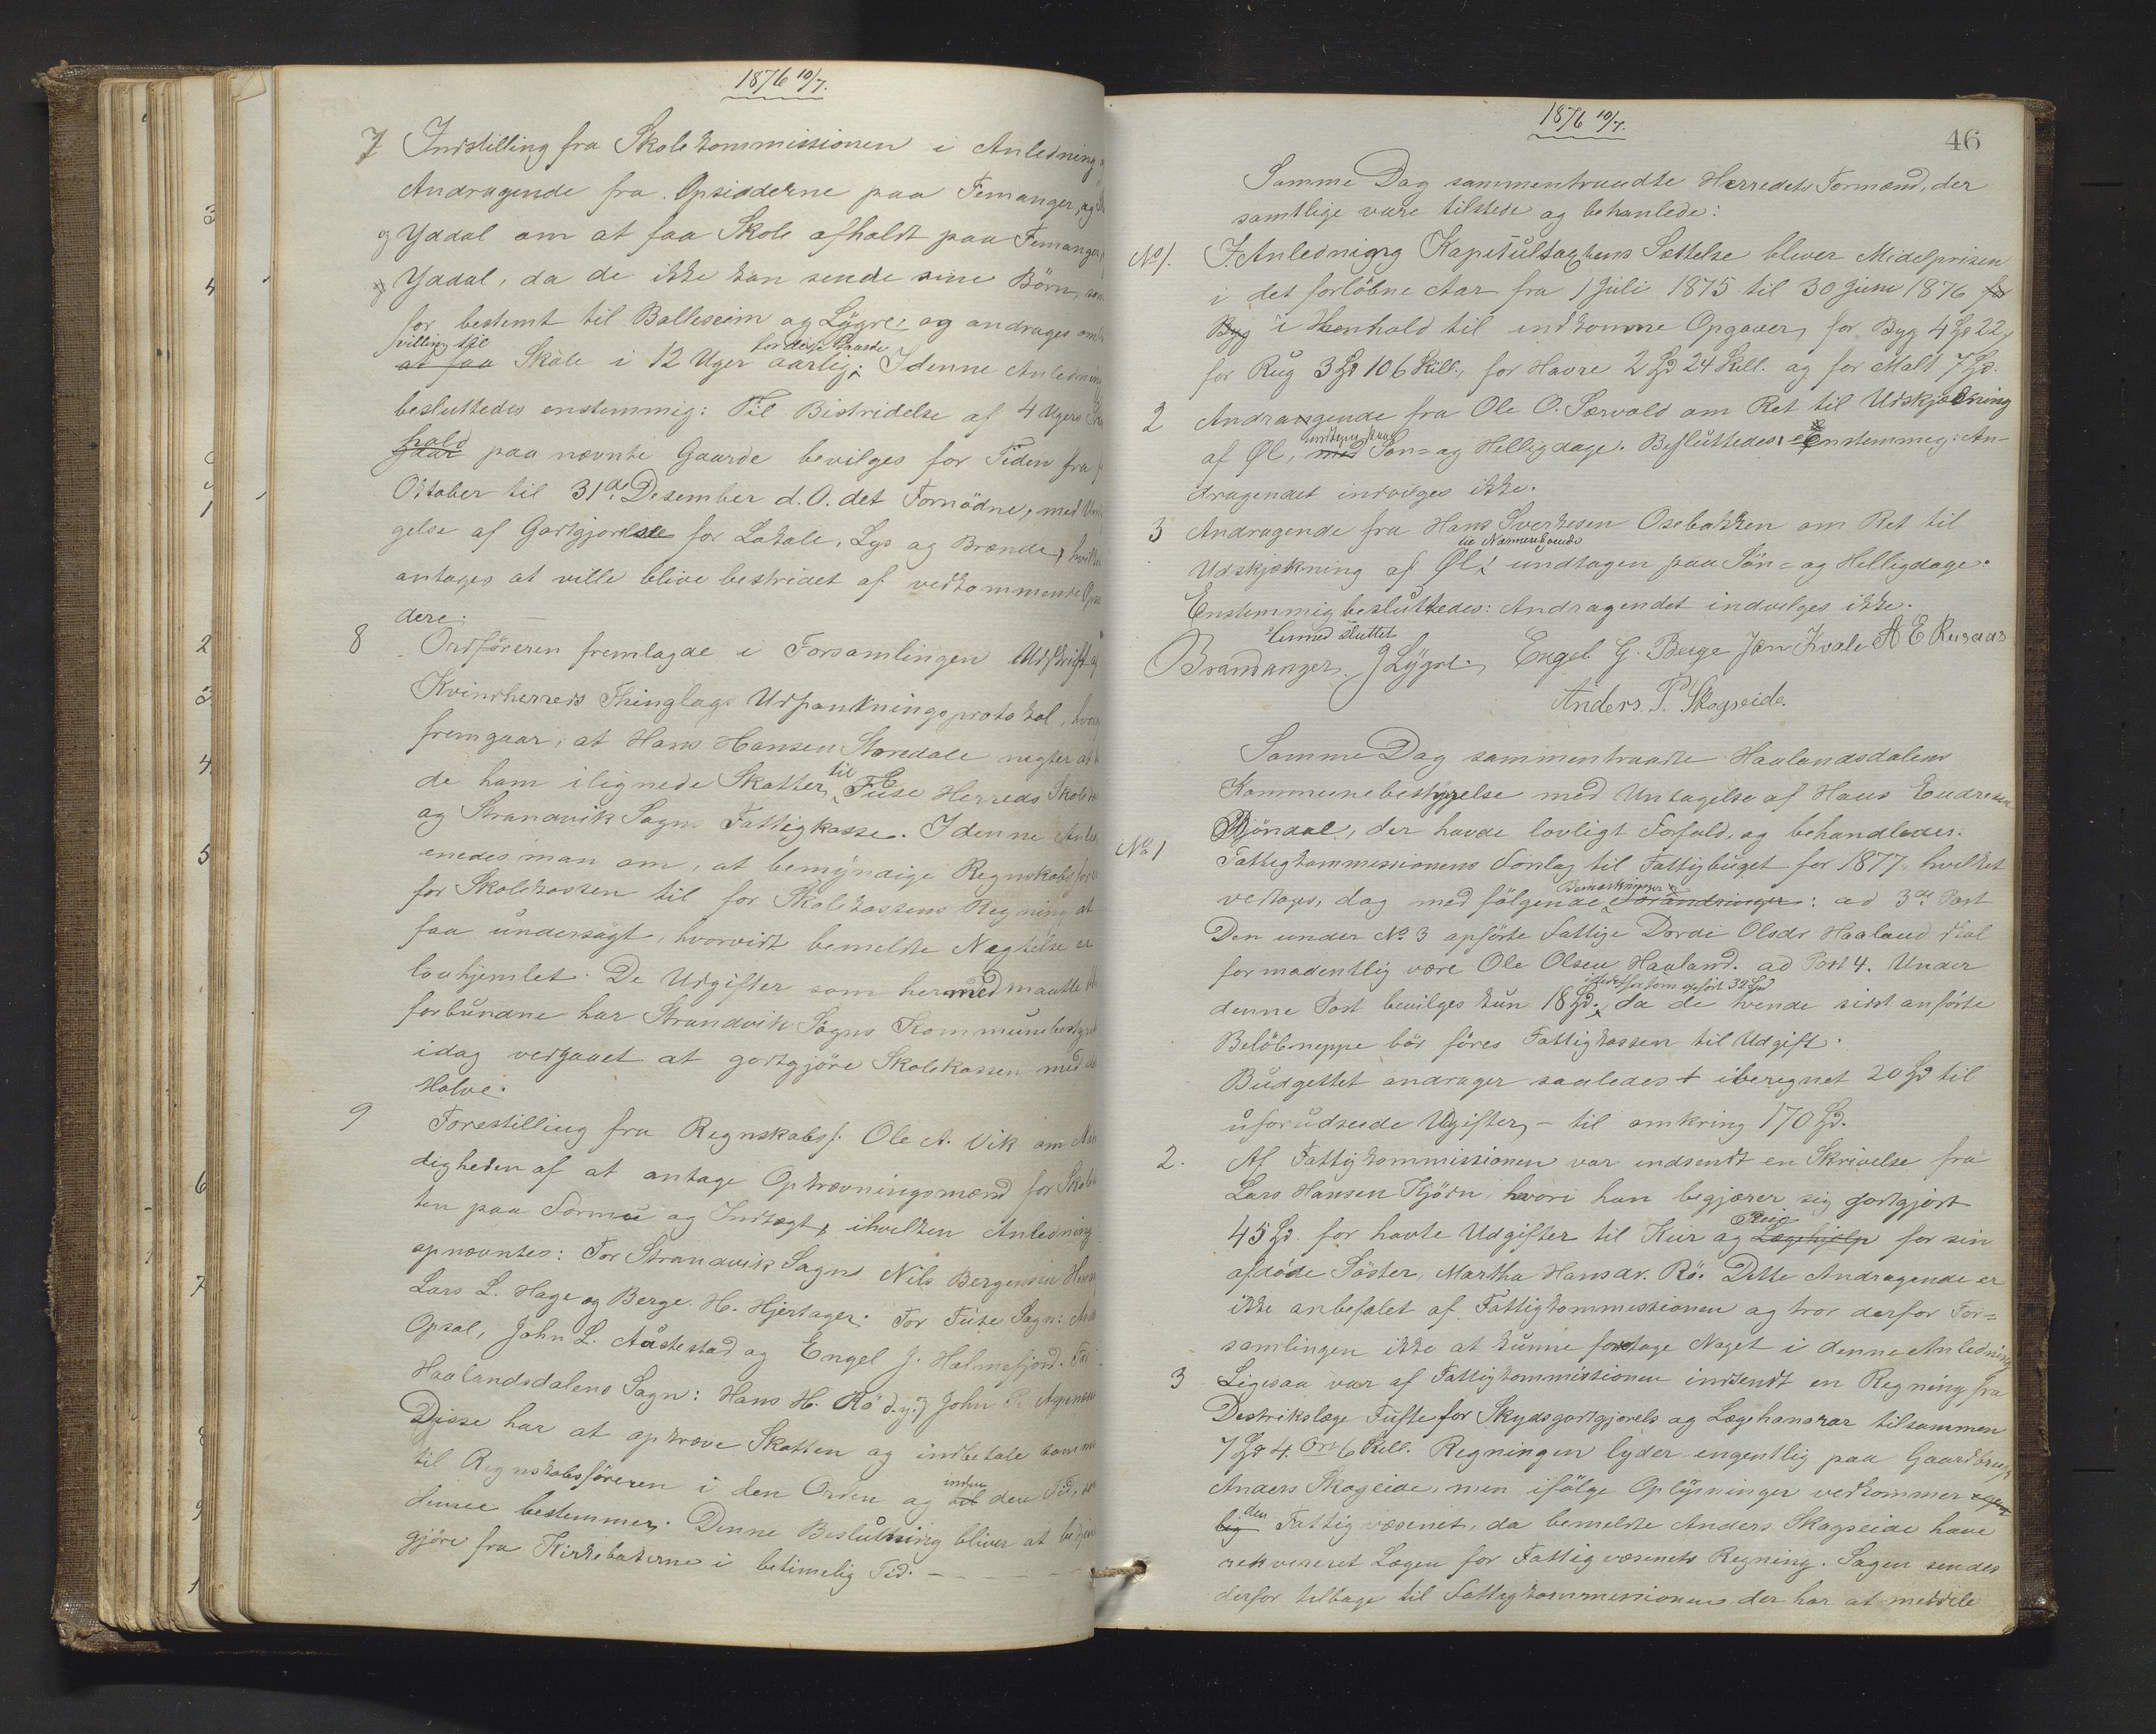 1876 10/7.
7 Indstilling fra Skolekommissionen i Anledning
Andragende fra Opsidderne paa Femanger, og
og Yddal om at faa Skole afholdt paa Femanger
og Yddal, da de ikke kan sende sine Börn, som
for bestemt til Balleseim og Lygre: og andrages om
villing til for disse Gaarde
at faa Skole i 12 Uger aarlig. I denne Anledning
besluttedes enstemmig: Til Bistridelse af 4 Ugers
hold
paa nævnte Gaarde bevilges for Tiden fra
Oktober til 31de Desember d. A. det Fornödne, med
gelse af Godtgjorelse for Lokale, Lys og Brænde, hvilket
antages at ville blive bestridet af vedkommende
dere.
8 Ordföreren fremlagde i Forsamlingen Udskrift af
Kvindherreds Thinglags Udpantningsprotokol, hvoraf
fremgaar, at Hans Hansen Storedale negter at
de ham ilignede Skatter til Fuse Herreds Skole
og Strandvik Sogns Fattigkasse. I denne
enedes man om, at bemyndige Regnskabsförer
for Skolekassen til for Skolekassens Regning at
faa undersögt, hvorvidt bemeldte Negtelse er
lovhjemlet. De Udgifter som hermed maatte
forbundne har Strandvik Sogns Kommunebestyrelse
idag vedtaaet at godtgjöre Skolekassen med det
Halve.
9 Forestilling fra Regnskabsf. Ole A. Vik om
digheden af at antage Opkrævningsmænd for
ten paa Formue og Indtægt, ihvilken Anledning
opnævntes: For Strandvik Sogn Nils Bergesen
Lars L. Hage og Berge H. Hjertager. For Fuse Sogn:
Opsal, John L. Austestad og Engel J. Holmefjord. For
Haalandsdalens Sogn: Hans H. Rö d.y. og John
Disse har at opkræve Skatten og indbetale samme
til Regnskabsföreren i den Orden og
inden
til den Tid, som
denne bestemmer. Denne Beslutning bliver at
gjöre fra Kirkebakkerne i betimelig Tid. – – – – –
1876 10/7.
46
Samme Dag sammentraadte Herredets Formænd, der
samtlige vare tilstede og behanlede:
No 1. I Anledning Kapitultaxtens Sættelse bliver Midelprisen
i det forlöbne Aar fra 1 Juli 1875 til 30 Juni 1876 for
Byg i Henhold til indkomne Opgaver, for Byg 4 Spd 22,
for Rug 3 Spd 106 Skill., for Havre 2 Spd 24 Skill. og for Malt 7 Spd.
2 Andragende fra Ole O. Særvold om Ret til Udskjækning
undtagen paa
af Øl, med Søn= og Helligdage. Besluttedes Enstemmeg: An-
dragendet indvilges ikke.
3 Andragende fra Hans Sverkesen Osebakken om Ret til
til Nærmereboende
Udskjækning af Øl, undtagen paa Sön= og Helligdage.
Enstemmig besluttedes: Andragendet indvilges ikke.
Hermed sluttet
Brandanger. J Lygre. Engel G. Berge Jon Kvale A E Rusaas
Anders P. Skogseide.
Samme Dag sammentraadte Haalandsdalens
Kommunebestyrelse med Untagelse af Hans Endresen
Björndal, der havde lovligt Forfald, og behandledes.
No 1 Fattigkommissionens Forslag til Fattigbuget for 1877, hvilket
Bemærkninger
vedtages, dog med fölgende Forandringer: ad 3die Post
Den under No 3 opförte Fattige Dorde Olsdr Haaland skal
formodentlig være Ole Olsen Haaland. ad Post 4. Under
istedetfor som opfört 32 Spd
denne Post bevilges kun 18 Spd., da de tvende sidst anförte
Belöb neppe bör föres Fattigkassen til Udgift.
Budgettet andrager saaledes + iberegnet 20 Spd til
uforudseede Udgifter, – til omkring 170 Spd.
2. Af Fattigkommissionen var indsendt en Skrivelse fra
Lars Hansen Tjörn, hvori han begjærer sig godtgjort
Pleie
45 Spd. for havte Udgifter til Kur og Lægehjelp for sin
afdöde Söster, Martha Hansdr. Rö. Dette Andragende er
ikke anbefalet af Fattigkommissionen og tror derfor For=
samlingen ikke at kunne foretage Noget i denne Anledning
3 Ligesaa var af Fattigkommissionen indsendt en Regning fra
Destrikslæge Fuste for Skydsgodtgjorels og Lægehonorar tilsammen
7 Spd 4 Ort 6 Skill. Regningen lyder engentlig paa Gaardbruger
Anders Skogeide, men ifölge Oplysninger vedkommer egent
lig den Fattigvæsenet, da bemeldte Anders Skogseide have
rekvireret Lægen for Fattigvæsenets Regning. Sagen sendes
derfor tilbage til Fattigkommissionen, der har at meddele